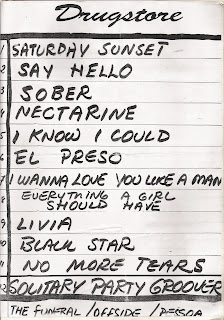 Drugstore
1 SATURDAY SUNSET
2 SAY HELLO
3 SOBER
4 NECTARINE
5 I KNOW I COULD
6 EL PRESO
7 I WANNA LOVE YOU LIKE A MAN
8 EVERYTHING A GIRL
SHOULD HAVE
9 LIVIA
10 BLACK STAR
11 NO MORE TEARS
12 SOLITARY PARTY GROOVER
THE FUNERAL / OFFSIDE / PESSOA